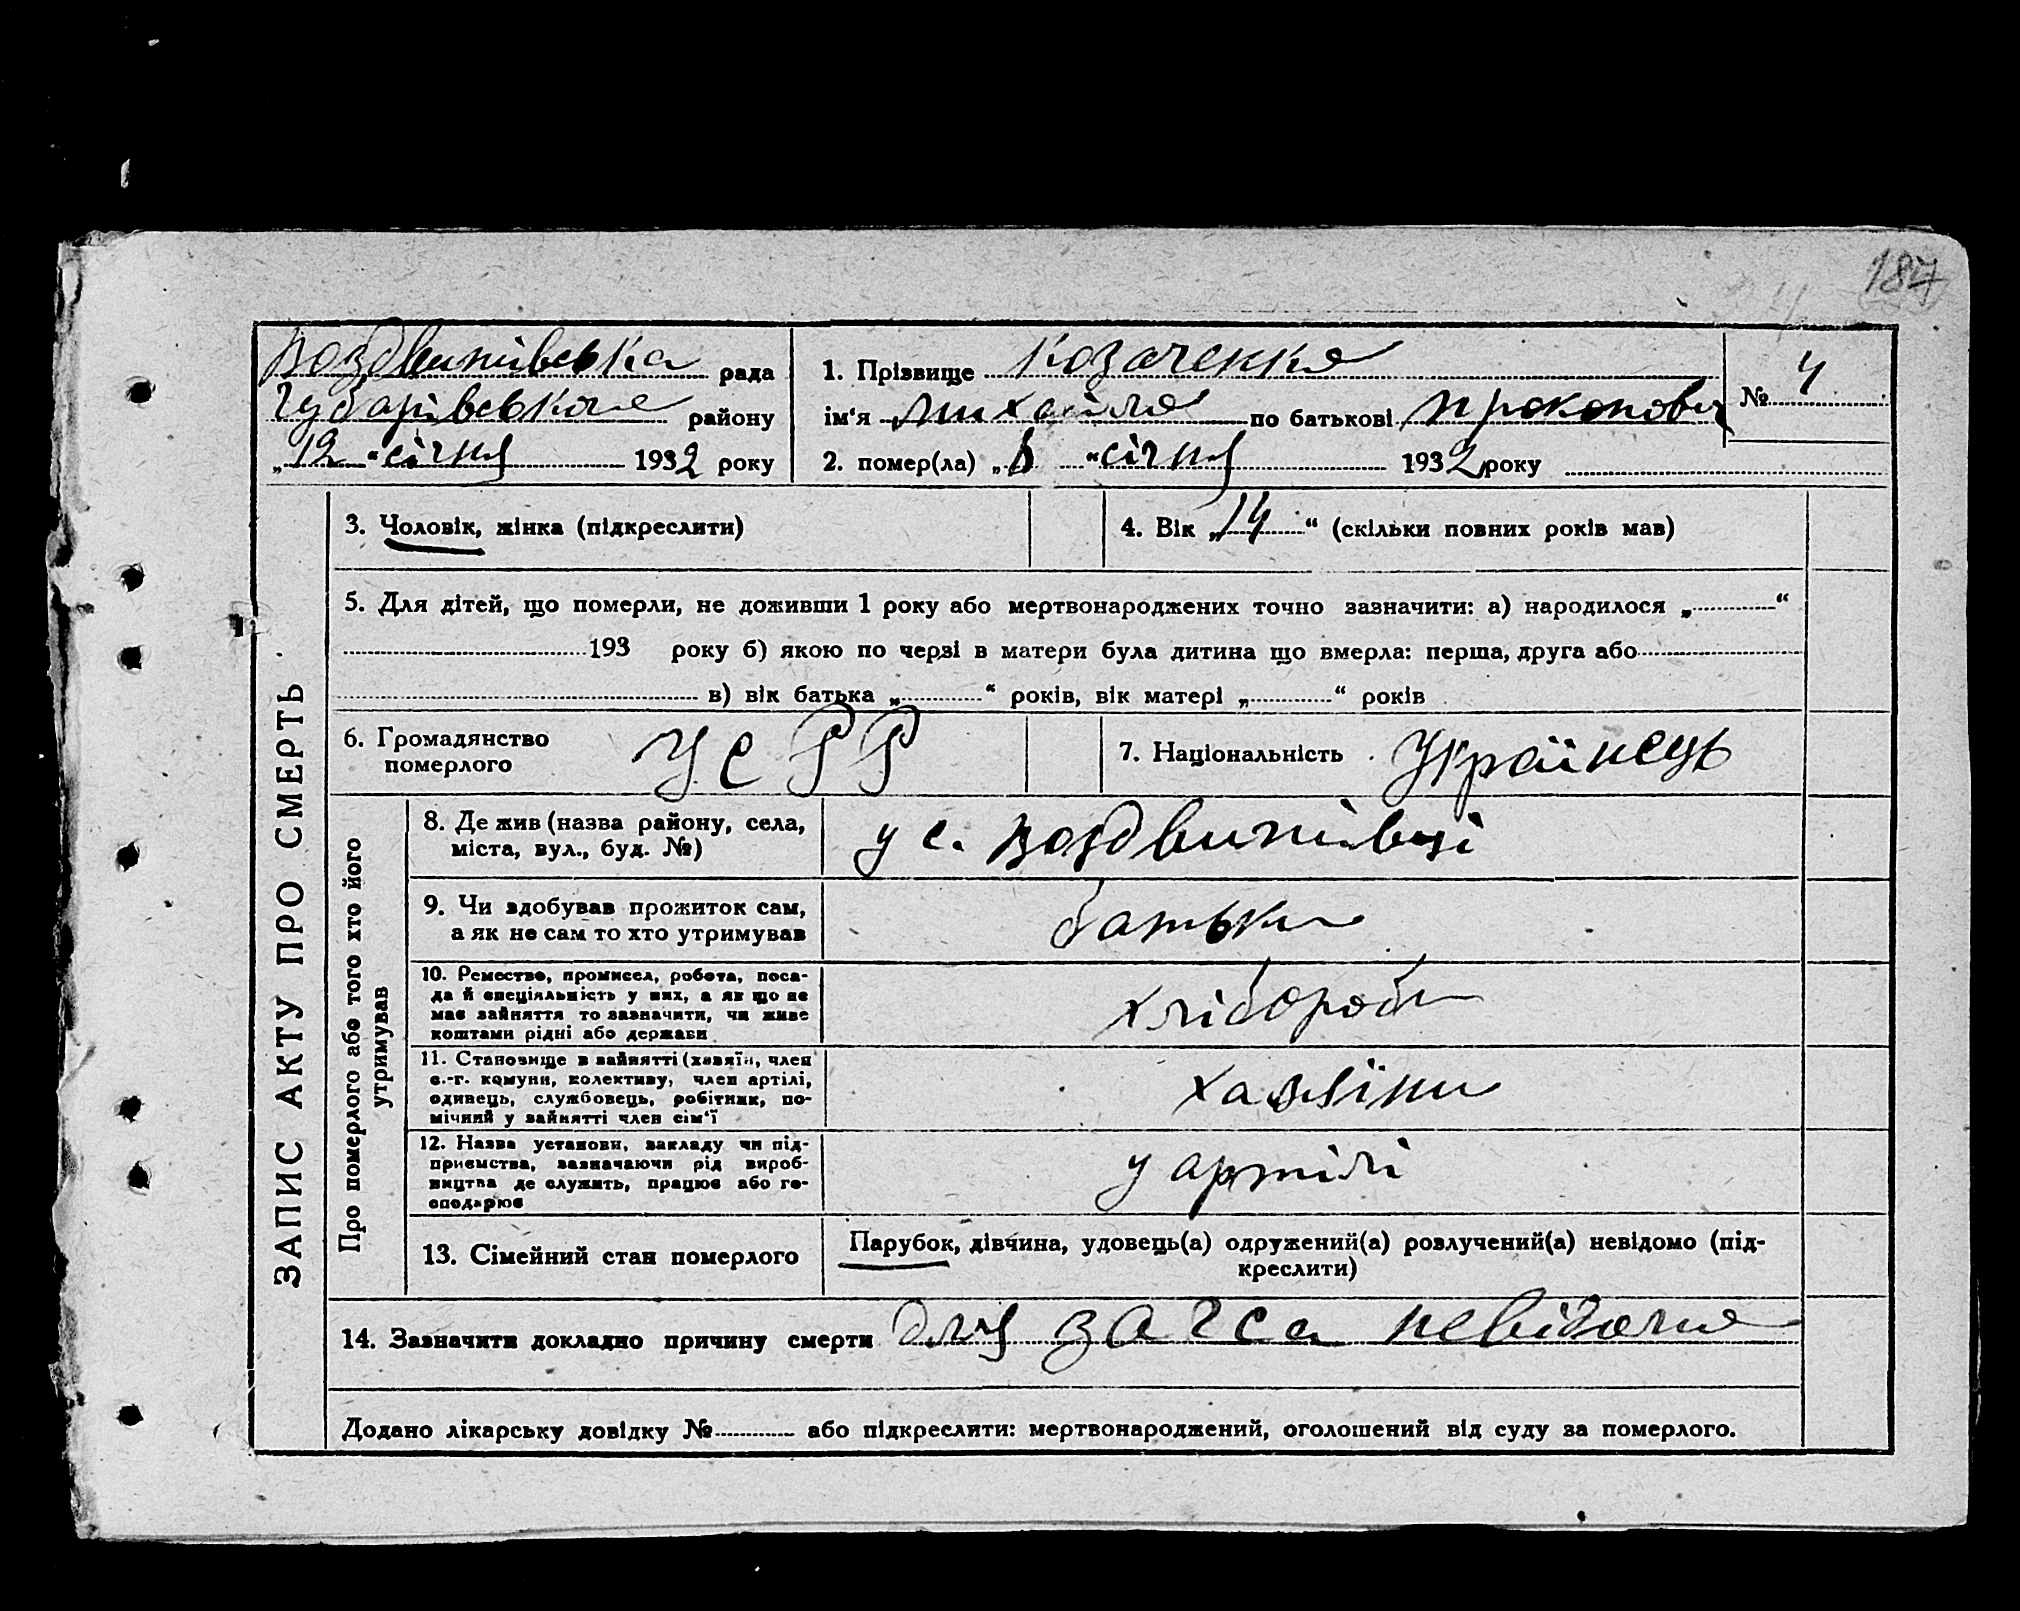 187
Воздвипівська рада
Губарівського району
„12“ січня 1932 року
1. Прізвище Козаченко
ім‘я Михайло по батькові Прокопович
№ 4
2. помер(ла) „8“ січня 1932 року
ЗАПИС АКТУ ПРО СМЕРТЬ
3. Чоловік, жінка (підкреслити)
4. Вік „14“ (скільки повних років мав)
5. Для дітей, що померли, не доживши 1 року або мертвонароджених точно зазначити: а) народилося „ “
193 року б) якою по черзі в матери була дитина що вмерла: перша, друга або
в) вік батька „ “ років, вік матері „ “ років
6. Громадянство
померлого
УСРР
7. Національність Українець
Про померлого або того хто його
утримував
8. Де жив (назва району, села,
міста, вул., буд. №)
у с. Воздвипівці
9. Чи здобував прожиток сам,
а як не сам то хто утримував
батьки
10. Ремество, промисел, робота, поса-
да й спеціяльність у них, а як що не
має зайняття то зазначити, чи живе
коштами рідні або держави
хлібороби
11. Становище в зайнятті (хазяїн, член
с.-г. комуни, колективу, член артілі,
одинець, службовець, робітник, по-
мічний у зайнятті член сім‘ї
хазяїни
12. Назва установи, закладу чи під-
приємства, зазначаючи рід вироб-
ництва де служить, працює або го-
сподарює
у артілі
13. Сімейний стан померлого
Парубок, дівчина, удовець(а) одружений(а) розлучений(а) невідомо (під-
креслити)
14. Зазначити докладно причину смерти для загса невідомо
Додано лікарську довідку № або підкреслити: мертвонароджений, оголошений від суду за померлого.